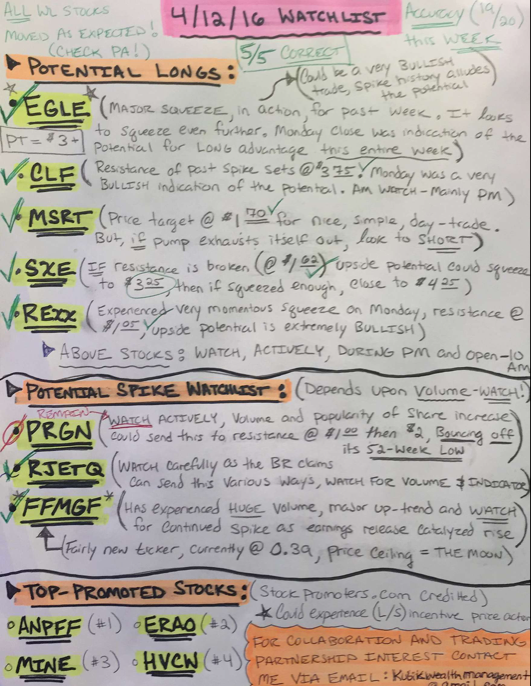 ALL WL STOCKS
MOVED AS EXPECTED!
(CHECK PA!)
4/12/16 WATCHLIST
5/5 CORRECT
ACCURACY (19/20)
this WEEK
POTENTIAL LONGS:
Could be a very BULLISH
trade, Spike history alludes
the potential
EGLE (MAJOR SQUEEZE, in action, for past week. It looks
PT = $3+
to squeeze even further. Monday close was indication of the
Potential for LONG advantage this entire week)
CLF (Resistance of past Spike sets @ $3.75! Monday was a very
BULLISH indication of the potential. Am WATCH-Mainly PM)
MSRT (Price target @ $1.70 for nice, simple, day-trade.
But, if pump exhausts itself out, look to SHORT)
SXE (IF resistance is broken (@ $1.62) upside potential could squeeze
to $3.25 then if squeezed enough, close to $4.25)
REXX (Experienced very momentous squeeze on Monday, resistance @
$1.05, upside potential is extremely BULLISH)
ABOVE STOCKS: WATCH, ACTIVELY, DURING PM and open-10
Am
POTENTIAL SPIKE WATCHLIST: (Depends upon Volume-WATCH!)
REMAIN
PRGN (WATCH ACTIVELY, Volume and popularity of Share increase
Could send this to resistance @ $1.00 then $2, Bouncing off
its 52-Week Low
RJETQ (WATCH Carefully as the BR claims
Can send this Various Ways, WATCH FOR VOLUME & INDICATOR
*FFMGF* (HAS experienced HUGE Volume, major up-trend and WATCH)
for Continued Spike as earnings release Catalyzed rise)
(Fairly new ticker, Currently @ 0.39, Price Ceiling = THE MOON)
TOP-PROMOTED STOCKS: (Stock Promoters.com Credited)
Could experience (L/S) incentive price action
ANPFF (#1) ERAO (#2)
MINE (#3) HVCW (#4)
FOR COLLABORATION AND TRADING
PARTNERSHIP INTEREST CONTACT
ME VIA EMAIL: Kubikwealthmanagement
@gmail.com